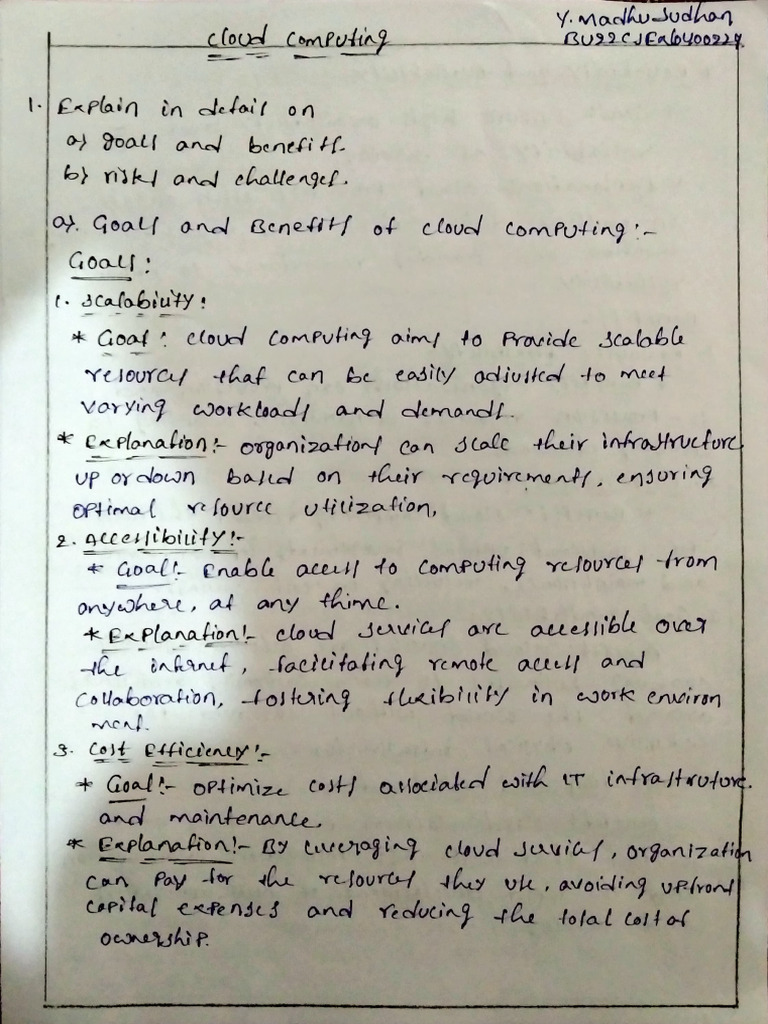 Y. Madhu Sudhan
Cloud Computing
1. Explain in detail on
a) goals and benefits.
b) risks and challenges.
a). Goals and Benefits of cloud computing:-
Goals:
1. Scalability:
* Goal: cloud computing aims to Provide scalable
resources that can be easily adjusted to meet
varying workloads and demands.
* Explanation:- organizations can scale their infrastructure
up or down based on their requirements, ensuring
optimal resource utilization,
2. Accessibility:-
* Goal:- Enable access to computing resources from
anywhere, at any thime.
* Explanation:- cloud services are accessible over
the internet, facilitating remote access and
collaboration, fostering flexibility in work environ
ment.
3. Cost Efficiency:-
* Goal:- optimize costs associated with IT infrastruture.
and maintenance.
* Explanation:- By leveraging cloud services, organization
can pay for the resources they use, avoiding upfront
capital expenses and reducing the total cost of
ownership.